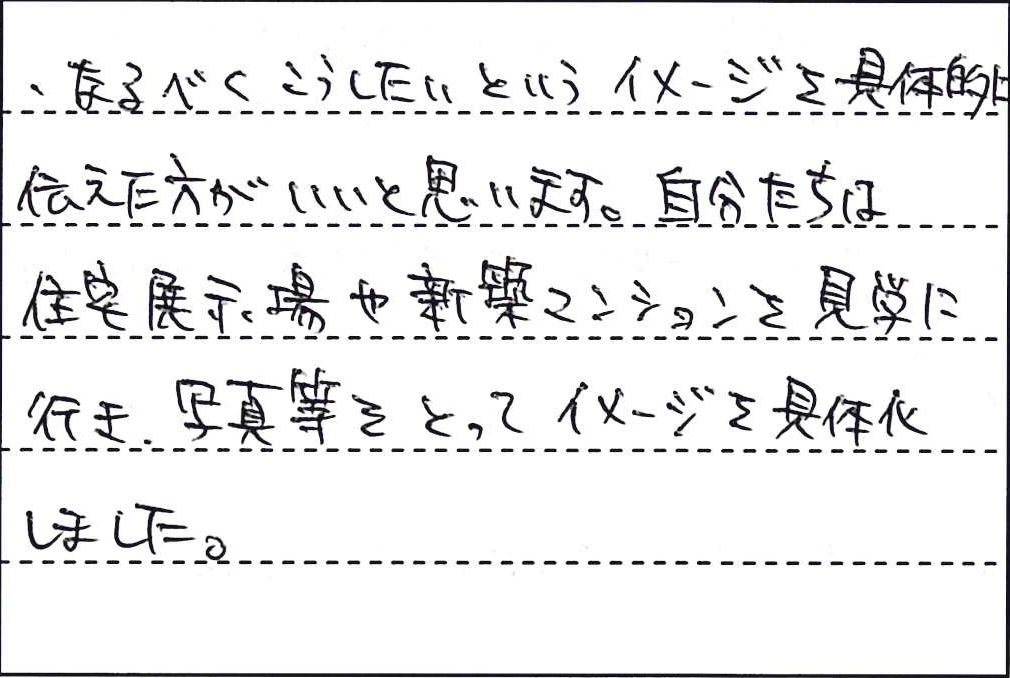 ・なるべくこうしたいというイメージを具体的に
伝えた方がいいと思います。自分たちは
住宅展示場や新築マンションを見学に
行き、写真等をとってイメージを具体化
しました。